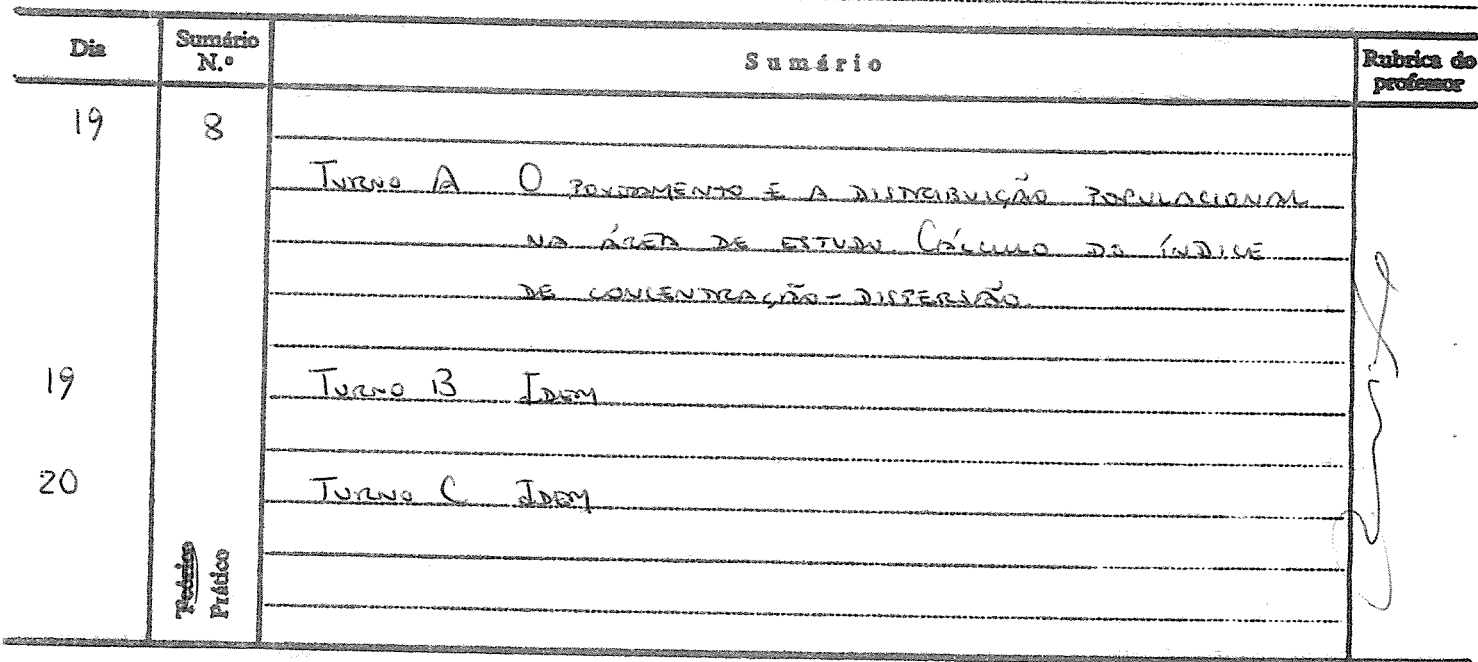 Dia Sumário N.º Sumário Rubrica do professor
19 8
TURNO A O POVOAMENTO E A DISTRIBUIÇÃO POPULACIONAL
NA ÁREA DE ESTUDO. CÁLCULO DO ÍNDICE
DE CONCENTRAÇÃO - DISPERSÃO.
19 TURNO B IDEM
20 TURNO C IDEM
Teórico
Prático